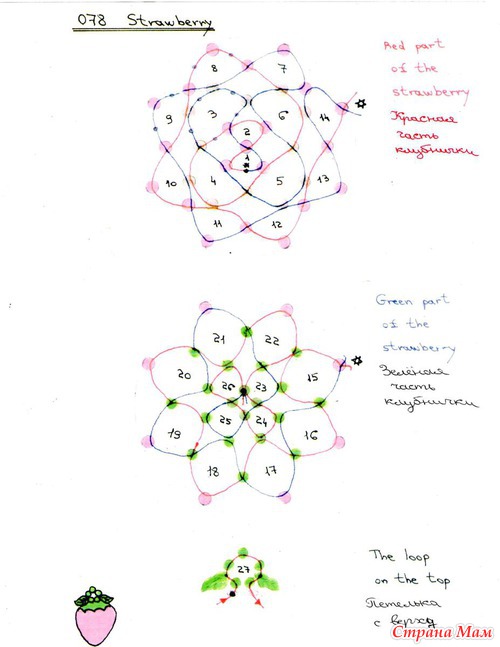 078 Strawberry
Red part
of the
strawberry
Красная
часть
клубнички
8
7
9
3
6
14
2
1
10
4
5
13
11
12
Green part
of the
strawberry
Зелёная
часть
клубнички
21
22
20
26
23
15
19
25
24
16
18
17
The loop
on the top
Петелька
с верху
27
Страна Мам